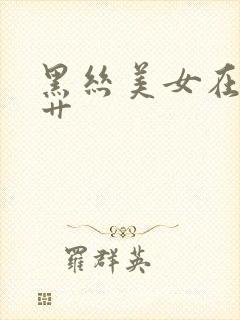 黑丝美女在
艹
羅群英